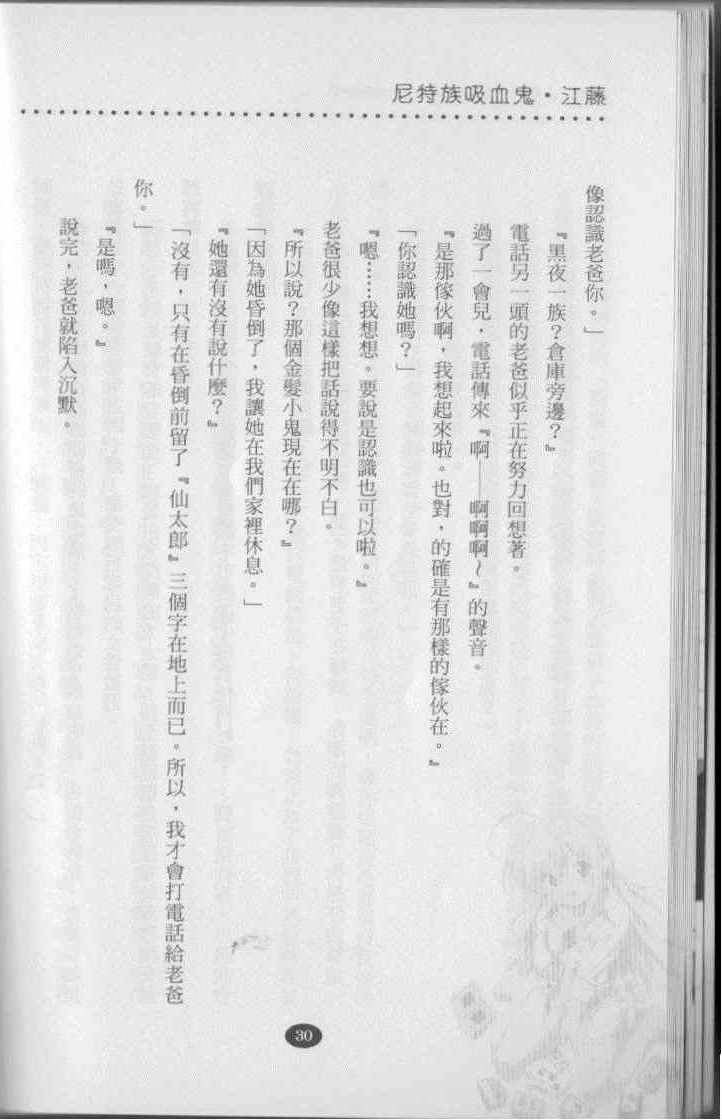 尼特族吸血鬼・江藤
像認識老爸你。」
『黑夜一族？倉庫旁邊？』
電話另一頭的老爸似乎正在努力回想著。
過了一會兒，電話傳來『啊——啊啊啊～』的聲音。
『是那傢伙啊，我想起來啦。也對，的確是有那樣的傢伙在。』
「你認識她嗎？」
『嗯……我想想。要說是認識也可以啦。』
老爸很少像這樣把話說得不明不白。
『所以說？那個金髮小鬼現在在哪？』
「因為她昏倒了，我讓她在我們家裡休息。」
『她還有沒有說什麼？』
「沒有，只有在昏倒前留了『仙太郎』三個字在地上而已。所以，我才會打電話給老爸
你。」
『是嗎，嗯。』
說完，老爸就陷入沉默。
30